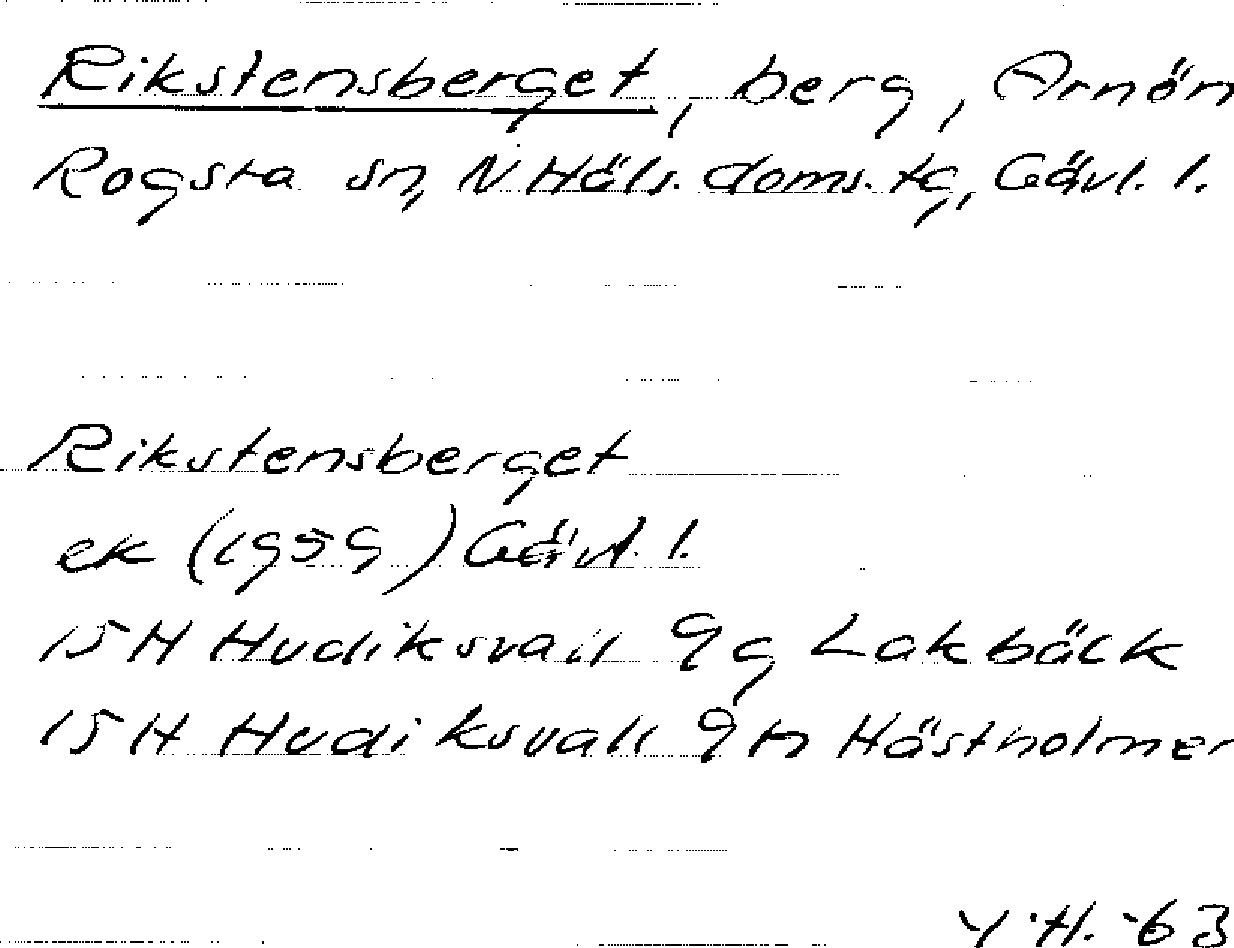 Rikstensberget, berg, Arnön
Rogsta sn, N Häls. doms. tg, Gävl. l.
Rikstensberget
ek (1959) Gävl. l.
15H Hudiksvall 9g Lakbäck
15H Hudiksvall 9h Hästholmen
Y.H. -63